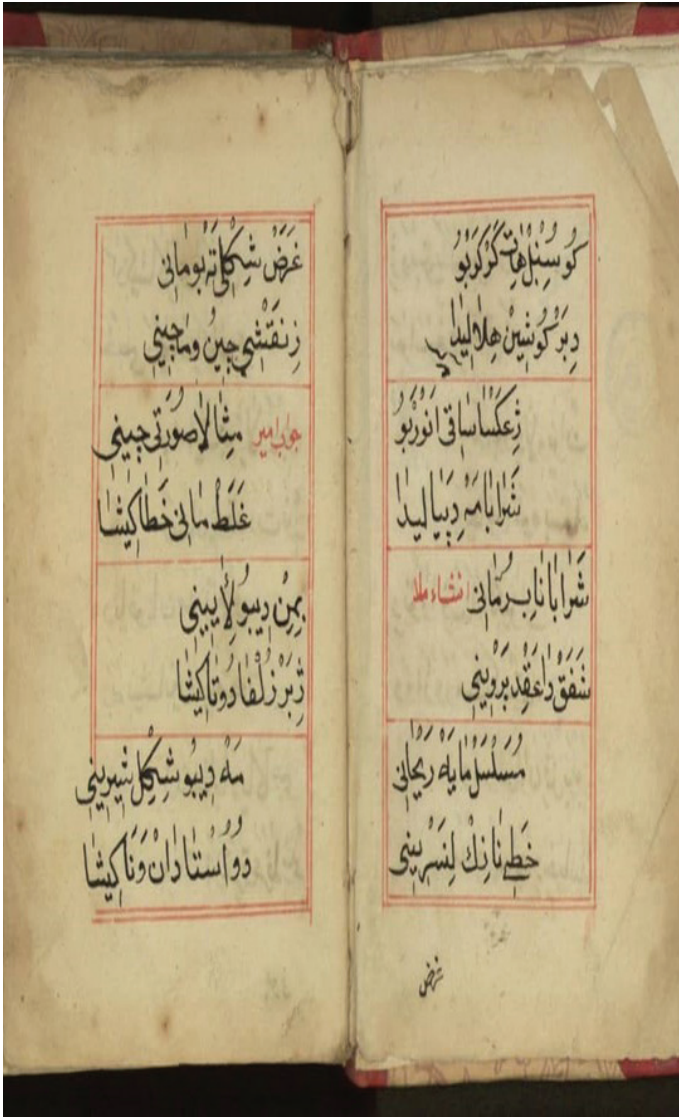 كُو سُنْبُلْ هَاتِ كَرْكَرْبُو
دِبَرْ كُوشِينْ هِلَالِيدَا
ژِعَكْسَا سَاقِي اَنْوَرْبُو
شَرَابَا مَهْ دِپيَا لِيدَا
شَرَابَا نَابِ رُمَّانِي انشاء ملا
شَفَقْ دَا عَقْدِ پَرْوِينِي
مُسَلْسَلْ مَايَهْ رَيْحَانِي
خَطِي نَازِكْ لِنَسْرِينِي
غرض
غَرَضْ شِكْلِي تَهْ بُو مَانِي
زِنَقْشِي چِينُ و مَاچِينِي
جواب امير مِثَالَا صُورَتِي چِينِي
غَلَطْ مَانِي خَطَا كِيشَا
بِمِنْ دِيبُو لِآيِينِي
ژِبَرْ زُلْفَا دُوتَا كِيشَا
مَهْ دِيبُو شِكْلِ شِيرِينِي
دُو اُسْتَادَانْ وَنَا كِيشَا